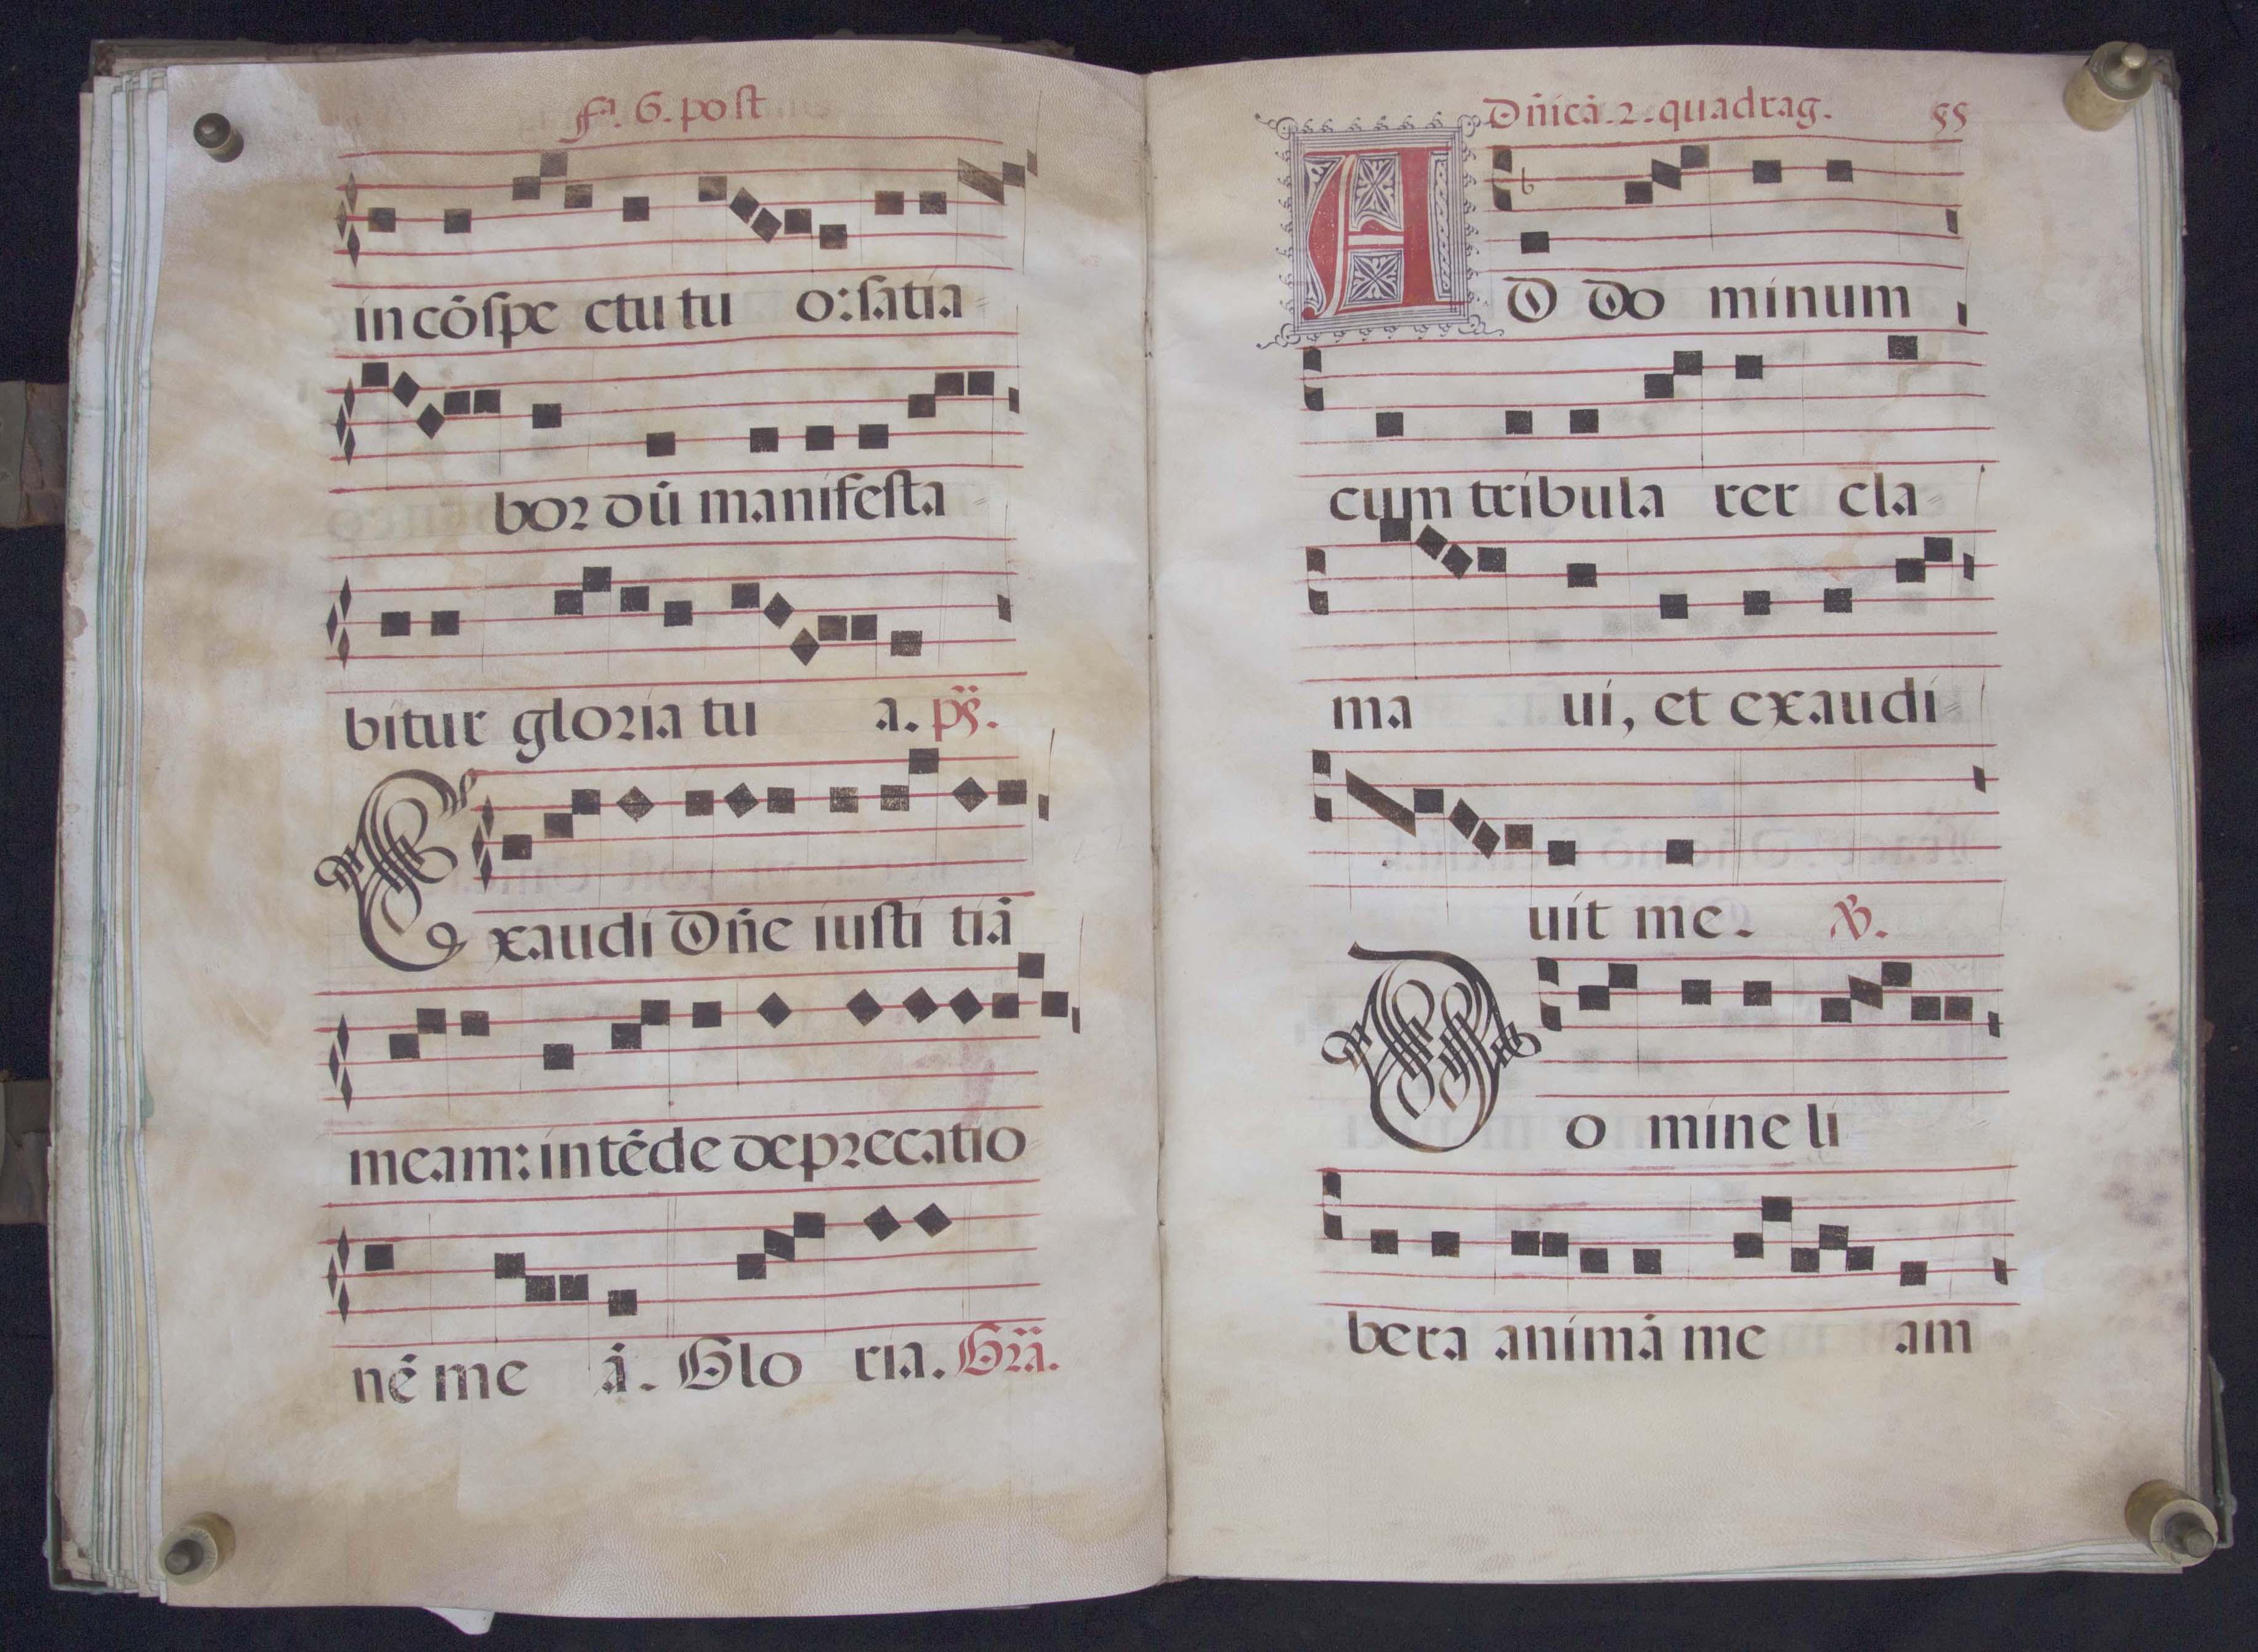 Fª. 6. post
in cōspe ctu tu o: satia
bor dū manifesta
bitur gloria tu a. ps̈.
Exaudi Dñe iusti tiā
meam: in tēde deprecatio
nē me ā. Glo ria. Grã.
Dñicā. 2. quadrag. 55
AD Do minum
cum tribula rer cla
ma ui, et exaudi
uit me. ℣.
Do mine li
bera animā me am